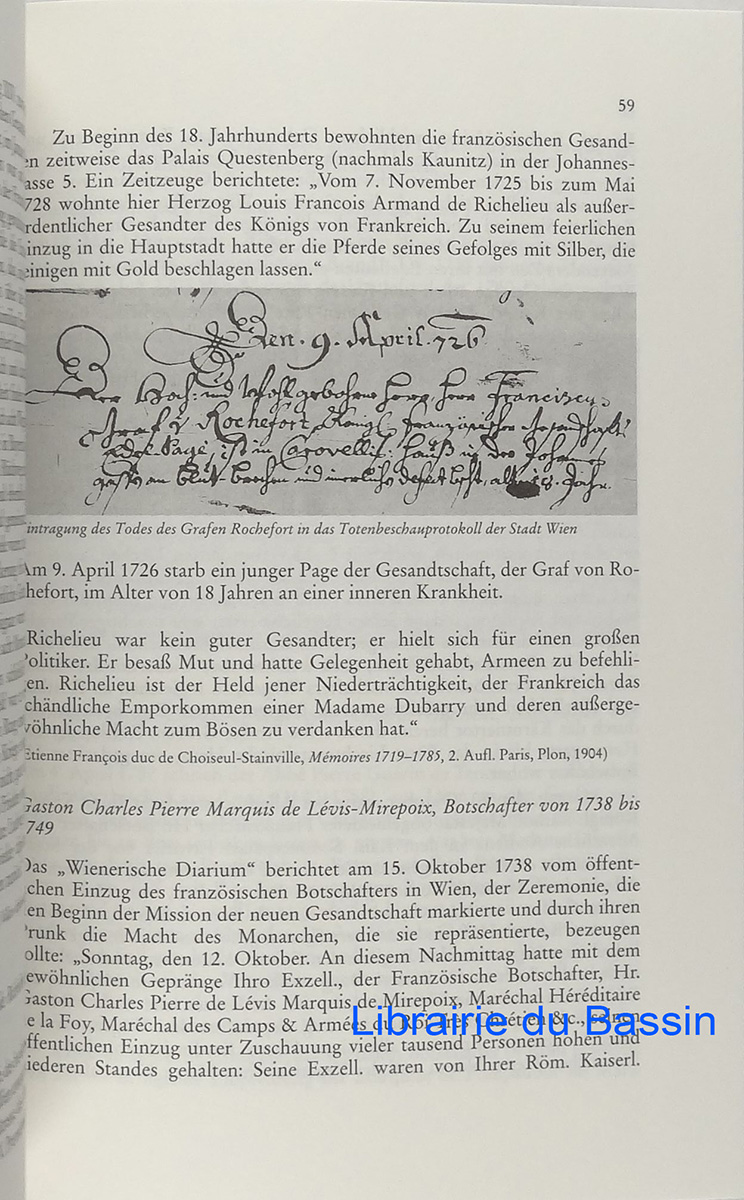 59
Zu Beginn des 18. Jahrhunderts bewohnten die französischen Gesand-
en zeitweise das Palais Questenberg (nachmals Kaunitz) in der Johannes-
asse 5. Ein Zeitzeuge berichtete: „Vom 7. November 1725 bis zum Mai
728 wohnte hier Herzog Louis Francois Armand de Richelieu als außer-
rdentlicher Gesandter des Königs von Frankreich. Zu seinem feierlichen
inzug in die Hauptstadt hatte er die Pferde seines Gefolges mit Silber, die
einigen mit Gold beschlagen lassen.“
Den. 9. April. 726
Der Hoch: und Wohlgebohrne Herr, Herr Franciscus
Graf v Rochefort, Königl: französischer
Page, ist im haus in der Johannes
an und 18. Jahr.
intragung des Todes des Grafen Rochefort in das Totenbeschauprotokoll der Stadt Wien
Am 9. April 1726 starb ein junger Page der Gesandtschaft, der Graf von Ro-
hefort, im Alter von 18 Jahren an einer inneren Krankheit.
Richelieu war kein guter Gesandter; er hielt sich für einen großen
Politiker. Er besaß Mut und hatte Gelegenheit gehabt, Armeen zu befehli-
en. Richelieu ist der Held jener Niederträchtigkeit, der Frankreich das
chändliche Emporkommen einer Madame Dubarry und deren außerge-
wöhnliche Macht zum Bösen zu verdanken hat.“
Etienne François duc de Choiseul-Stainville, Mémoires 1719–1785, 2. Aufl. Paris, Plon, 1904)
Gaston Charles Pierre Marquis de Lévis-Mirepoix, Botschafter von 1738 bis
749
Das „Wienerische Diarium“ berichtet am 15. Oktober 1738 vom öffent-
chen Einzug des französischen Botschafters in Wien, der Zeremonie, die
en Beginn der Mission der neuen Gesandtschaft markierte und durch ihren
Prunk die Macht des Monarchen, die sie repräsentierte, bezeugen
ollte: „Sonntag, den 12. Oktober. An diesem Nachmittag hatte mit dem
ewöhnlichen Gepränge Ihro Exzell., der Französische Botschafter, Hr.
Gaston Charles Pierre de Lévis Marquis de Mirepoix, Maréchal Héréditaire
e la Foy, Maréchal des Camps & Armées du Roi très Chrétien &c., seinen
ffentlichen Einzug unter Zuschauung vieler tausend Personen hohen und
iederen Standes gehalten: Seine Exzell. waren von Ihrer Röm. Kaiserl.
Librairie du Bassin